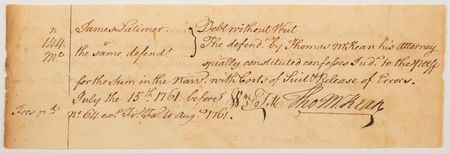 n James Latimer } Debt without Writ
144 the same defendt. } The defendt. by Thomas McKean his Attorney
mo specially constituted confesses Judt. to the Plaff
for the Sum in the Narr. with Costs of Suit & Release of Errors.
July the 15th. 1761. before Tho McKean
Fees pd. no. 64 Fi. Fa. to Augt. 1761.